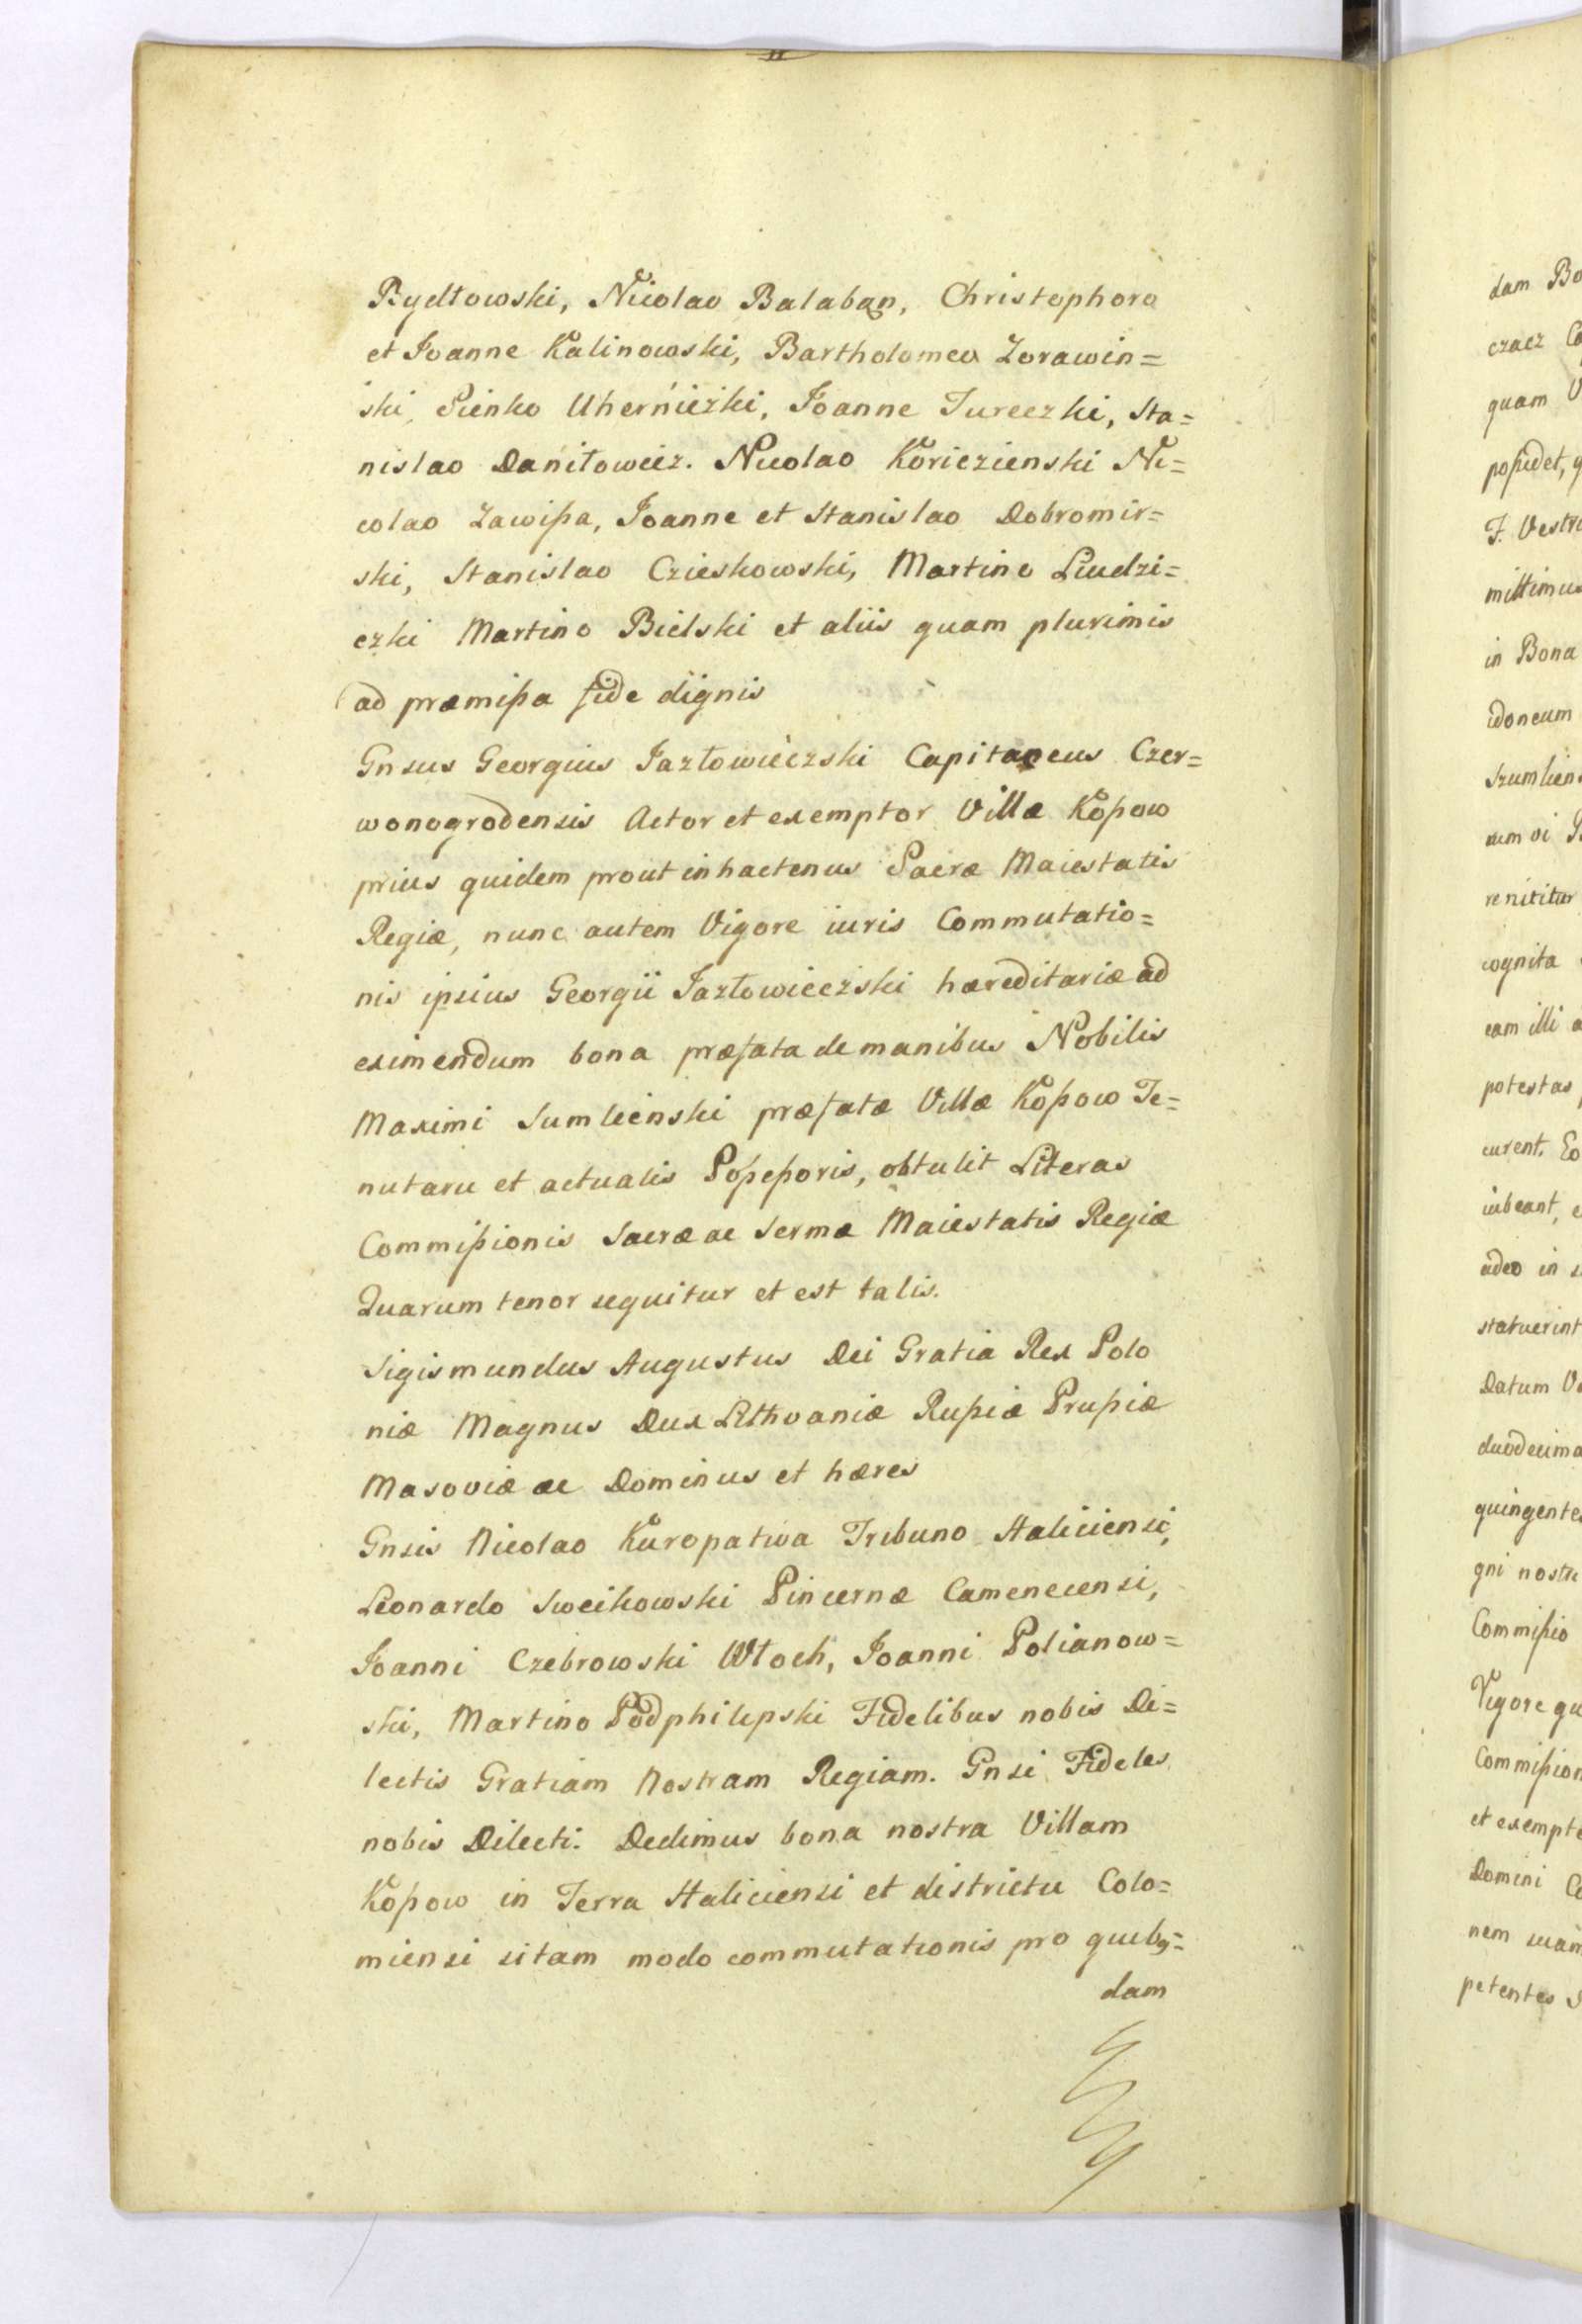 Rydłowski, Nicolao Balaban, Christophoro
et Joanne Kalinowski, Bartholomeo Zorawin=
ski, Sienko Uherniczki, Joanne Tureczki, Sta=
nislao Daniłowicz. Nicolao Koriczienski Ni=
colao Zawißa, Joanne et Stanislao Dobromir=
ski, Stanislao Czieskowski, Martino Liudzi=
czki Martino Bielski et aliis quam plurimis
ad præmißa fide dignis
Gnsus Georgius Jazłowieczski Capitaneus Czer=
wonogrodensis Actor et exemptor Villæ Koßow
prius quidem prout inhactenus Sacræ Maiestatis
Regiæ, nunc autem Vigore iuris Commutatio=
nis ipsius Georgii Jazłowieczski hæreditariæ ad
eximendum bona præfata de manibus Nobilis
Maximi Sumlienski præfatæ Villæ Koßow Te=
nutarii et actualis Poßeßoris, obtulit Literas
Commißionis Sacræ ac Sermæ Maiestatis Regiæ
Quarum tenor sequitur et est talis.
Sigismundus Augustus Dei Gratia Rex Polo
niæ Magnus Dux Lithvaniæ Rußiæ Prußiæ
Masoviæ ac Dominus et hæres
Gnsis Nicolao Kuropatwa Tribuno Haliciensi,
Leonardo Sweikowski Pincernæ Camenecensi,
Joanni Czebrowski Włoch, Joanni Polianow=
ski, Martino Podphilipski Fidelibus nobis Di=
lectis Gratiam Nostram Regiam. Gnsi Fideles
nobis Dilecti. Dedimus bona nostra Villam
Koßow in Terra Haliciensi et districtu Colo=
miensi sitam modo commutationis pro quibq=
dam
dam Bo
czacz
quam
poßidet,
F. Vestr
mittimus
in Bona
idoneum
Szumlien
rum vi
renititur
cognita
eam illi a
potestas
curent. Eo
iubeant,
adeo in
statuerint
Datum
duodecima
quingente
gni nostri
Commißio
Vigore qu
Commißion
et exempt
Domini
nem suam
petentes